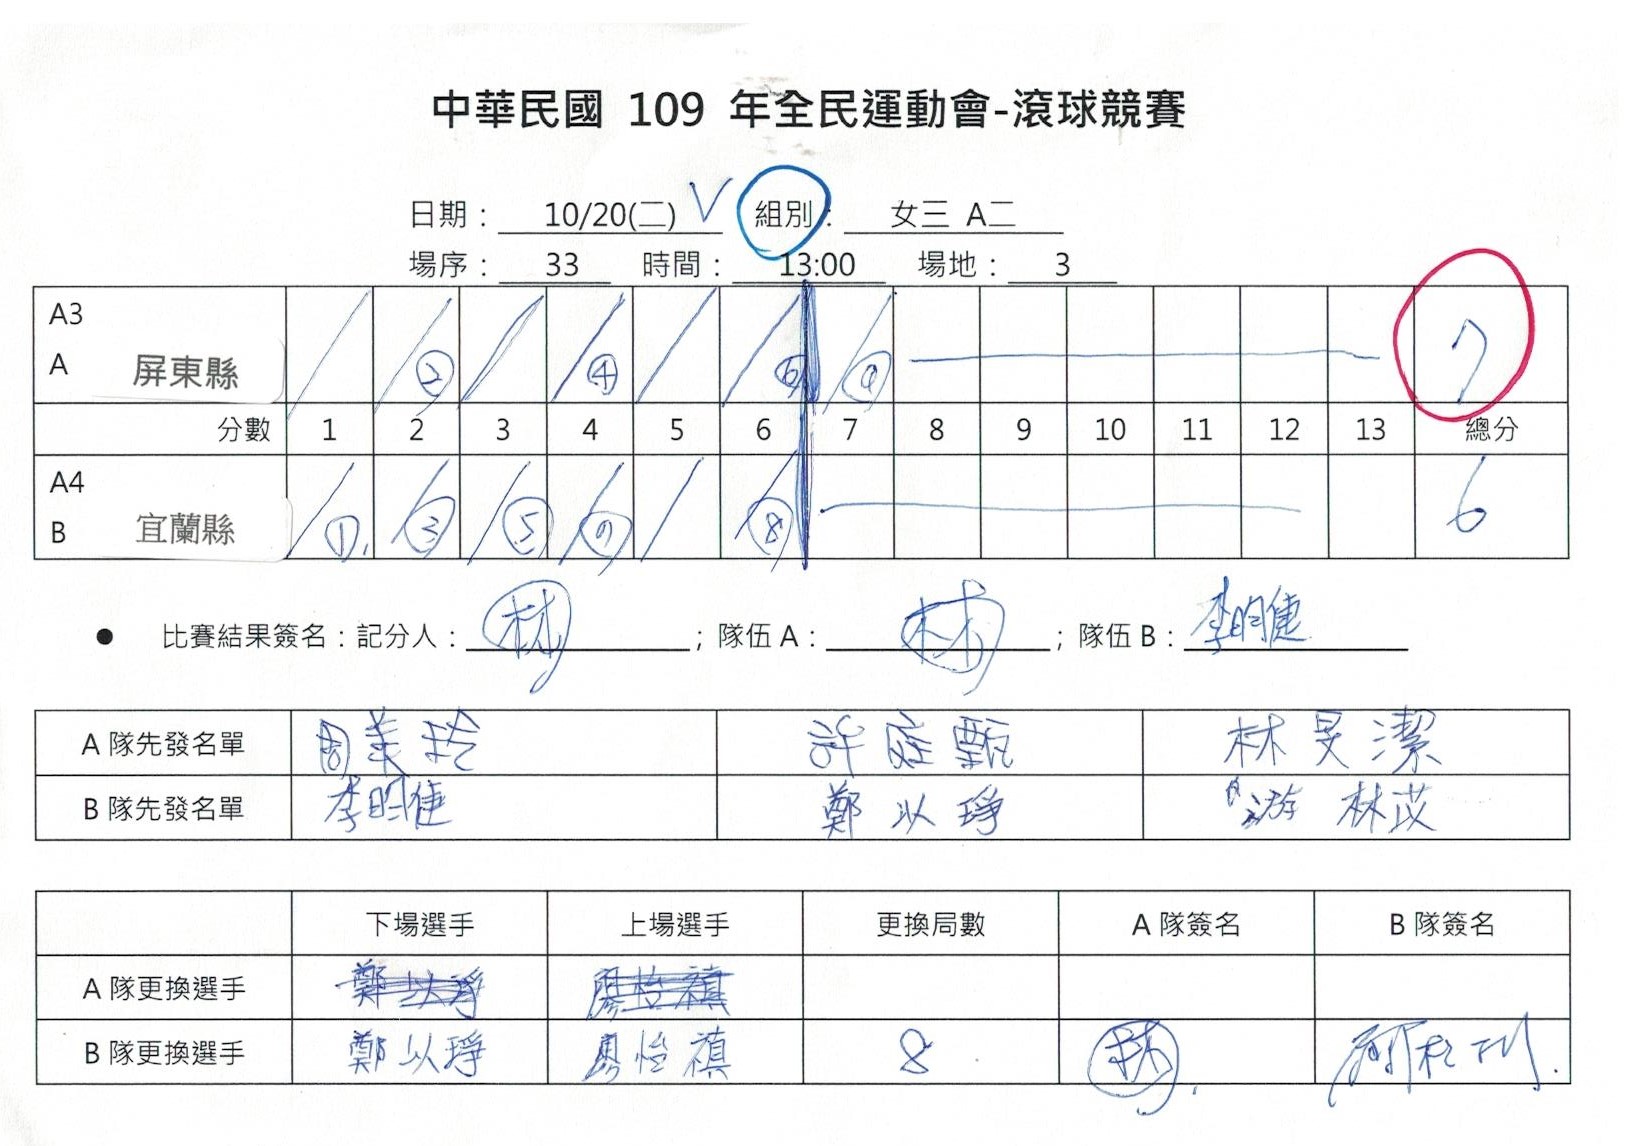 中華民國 109 年全民運動會-滾球競賽
日期： 10/20(二) V 組別： 女三 A二
場序： 33 時間： 13:00 場地： 3
A3
A 屏東縣 ② ④ ⑥ ⑨ 7
分數 1 2 3 4 5 6 7 8 9 10 11 12 13 總分
A4
B 宜蘭縣 ① ③ ⑤ ⑦ ⑧ 6
● 比賽結果簽名：記分人： 林 ；隊伍 A： 林 ；隊伍 B： 李昀倢
A 隊先發名單 周美玲 許庭甄 林旻潔
B 隊先發名單 李昀倢 鄭以琤 游林苡
下場選手 上場選手 更換局數 A 隊簽名 B 隊簽名
A 隊更換選手 鄭以琤 廖怡禛
B 隊更換選手 鄭以琤 廖怡禛 8 林